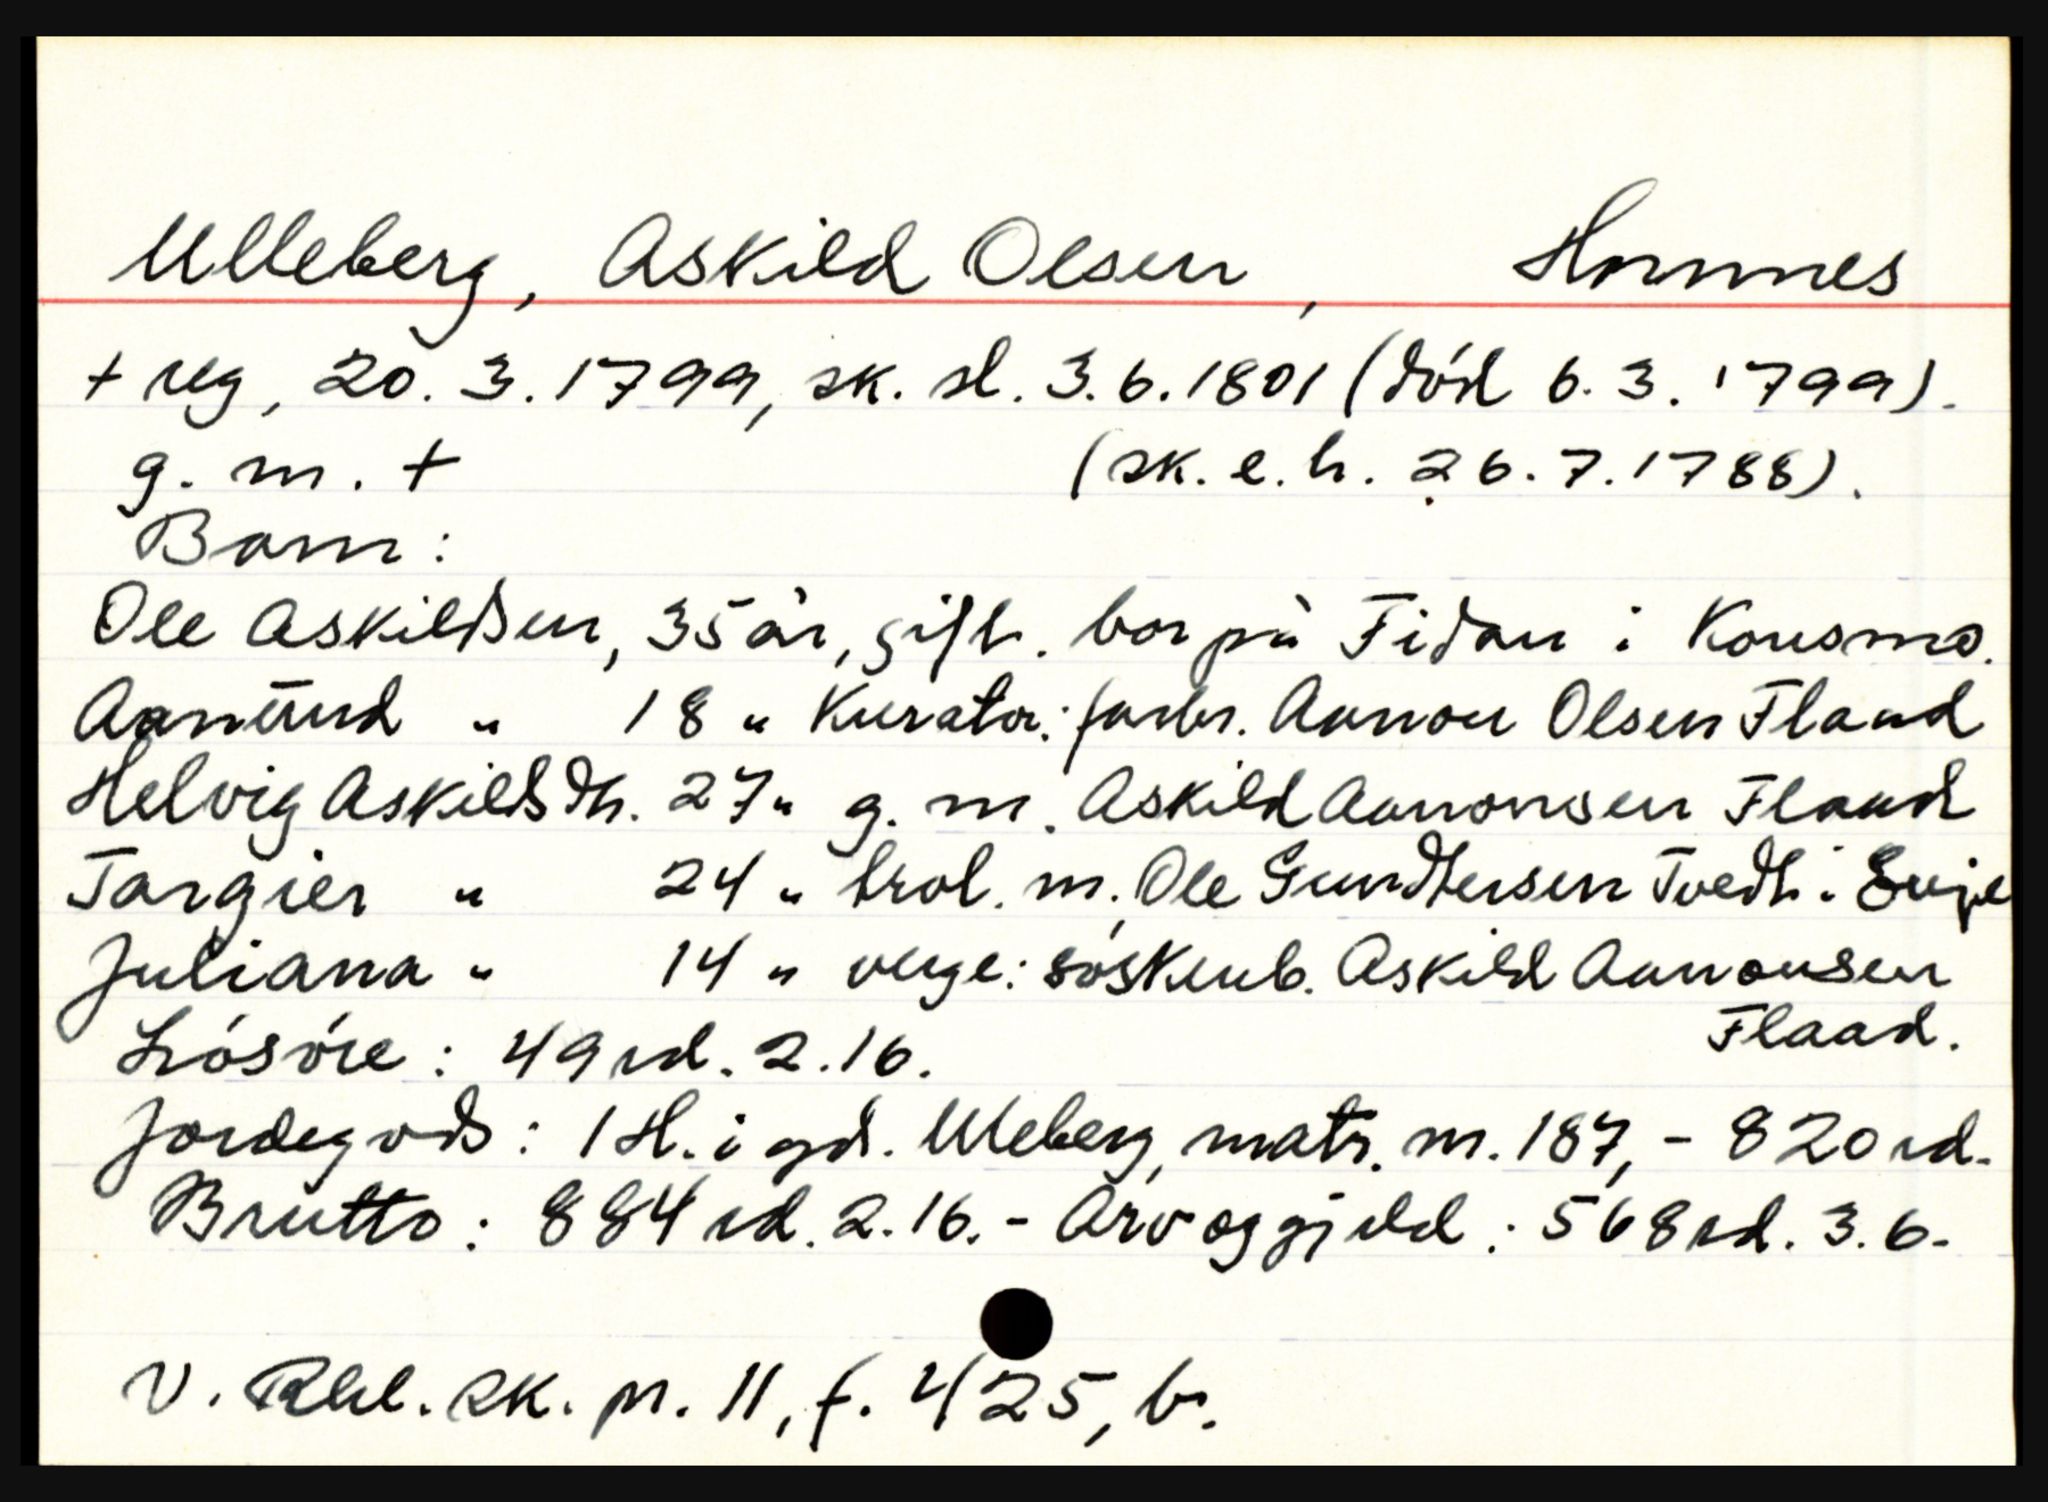 Ulleberg, Askild Olsen, Hornnes
+ reg, 20. 3. 1799, sk. sl. 3. 6. 1801 (död 6. 3. 1799).
g. m. + (sk. e. h. 26. 7. 1788).
Barn:
Ole Askildsen, 35 år, gift. bor på Fidan i Konsmo.
Aanund " 18 " Kurator: farbr. Aanon Olsen Flaad
Helvig Askildsdtr. 27 " g. m. Askild Aanonsen Flaad
Targier " 24 " trol. m. Ole Gundtersen Tvedt i Evje
Juliana " 14 " verge: söskenb. Askild Aanonsen
Flaad.
Lösöre: 49 rd. 2. 16.
Jordegods: 1 H. i gd. Uleberg, matr. nr. 187, - 820 rd.
Brutto: 884 rd. 2. 16. - Arv og gjeld: 568 rd. 3. 6.
V. Rbl. sk. pr. 11, f. 425, b.